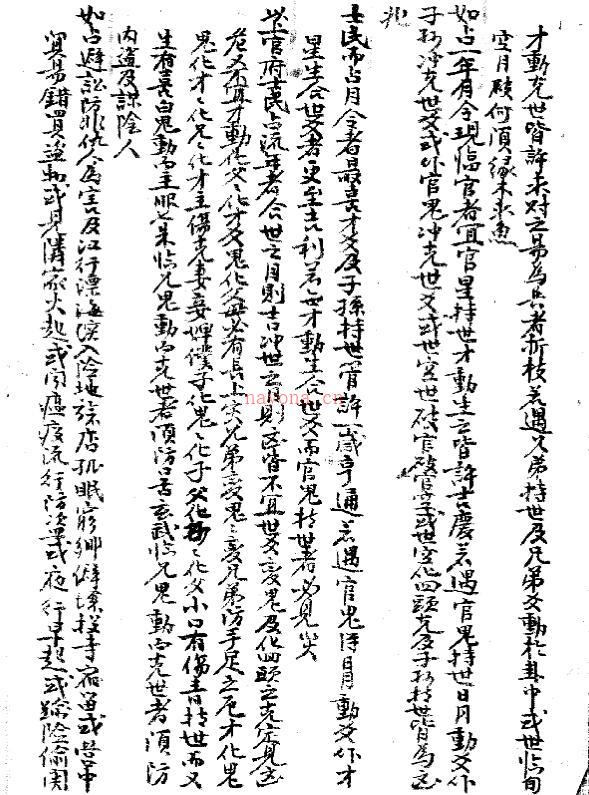 才動克世皆許求財之易為兵者折枝若遇兄弟持世及兄弟爻動於卦中或世臨旬
空月破何須緣木求魚
如占一年月令現臨官者宜官星持世才動生之皆許吉慶若遇官鬼持世日月動爻作
子孫冲克世爻或作官鬼冲克世爻或世空世破官破官空或世空化回頭克及子孫持世皆為凶
兆
士民而占月令者最喜才爻及子孫持世皆許一歲亨通若遇官鬼日月動爻作才
星生合世爻者更至吉利若世才動生合世爻而官鬼持世者必見災
上官府士民占流年者合世之月則吉冲世之月則凶皆不宜世爻變鬼及化回頭之克定見凶
危又不宜才動化父父化才父鬼化父母必有長上災兄弟變鬼鬼變兄弟防手足之危才化鬼
鬼化才才化兄兄化才主傷克妻妾婢僕子化鬼鬼化子父化子子化父小口有傷青持世而又
生者喜白鬼動而主服七朱臨兄鬼動而克世者須防口舌玄武臨兄鬼動而克世者須防
內盜及謀陰人
如占避訟防非仇人為害及江行漂海深入險地旅店孤眠窮鄉僻壤投寺宿留或營中
貿易錯買盜物或見隣家火起或聞瘟疫流行防染或夜行早起或踰險偷関
nayona.cn